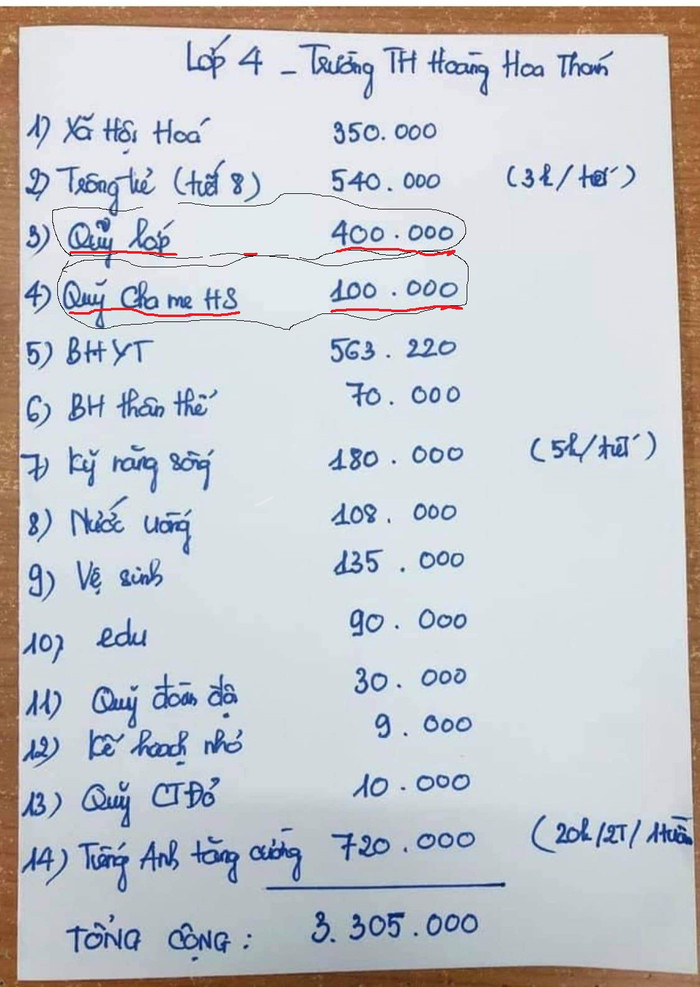 Lớp 4 - Trường TH Hoàng Hoa Thám
1) Xã Hội Hoá 350.000
2) Trông trẻ (tiết 8) 540.000 (3k/tiết)
3) Quỹ lớp 400.000
4) Quỹ Cha mẹ HS 100.000
5) BHYT 563.220
6) BH thân thể 70.000
7) Kỹ năng sống 180.000 (5k/tiết)
8) Nước uống 108.000
9) Vệ sinh 135.000
10) edu 90.000
11) Quỹ đoàn đội 30.000
12) Kế hoạch nhỏ 9.000
13) Quỹ CTĐỏ 10.000
14) Tiếng Anh tăng cường 720.000 (20k/2T/1tuần
TỔNG CỘNG: 3.305.000